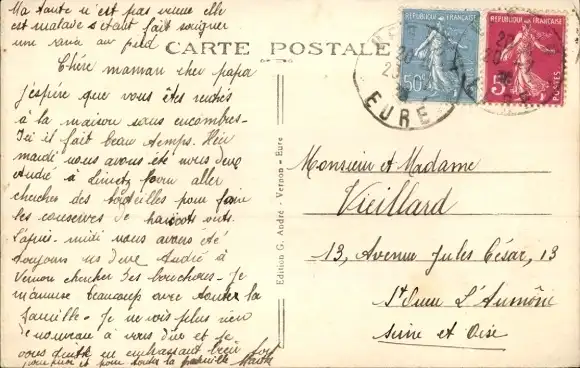 Ma tante n'est pas venue elle
est malade s'étant fait soigner
une au pied
CARTE POSTALE
Chère maman cher papa
J'espère que vous êtes rentrés
à la maison sans encombres-
Ici il fait beau temps. Hier
mardi nous avons été nous deux
André à pour aller
chercher des bouteilles pour faire
les conserves de haricots verts.
L'après-midi nous avons été
toujours ns deux André à
Vernon chercher des bouchons. Je
m'amuse beaucoup avec toute la
famille. Je ne vois plus rien
de nouveau à vous dire et je
vous quitte en embrassant bien fort
pour et pour toute la famille
Edition G. André - Vernon - Eure
REPUBLIQUE FRANÇAISE
50c
REPUBLIQUE FRANÇAISE
5c
POSTES
EURE
Monsieur et Madame
Vieillard
13, Avenue Jules César, 13
St Ouen L'Aumône
Seine et Oise